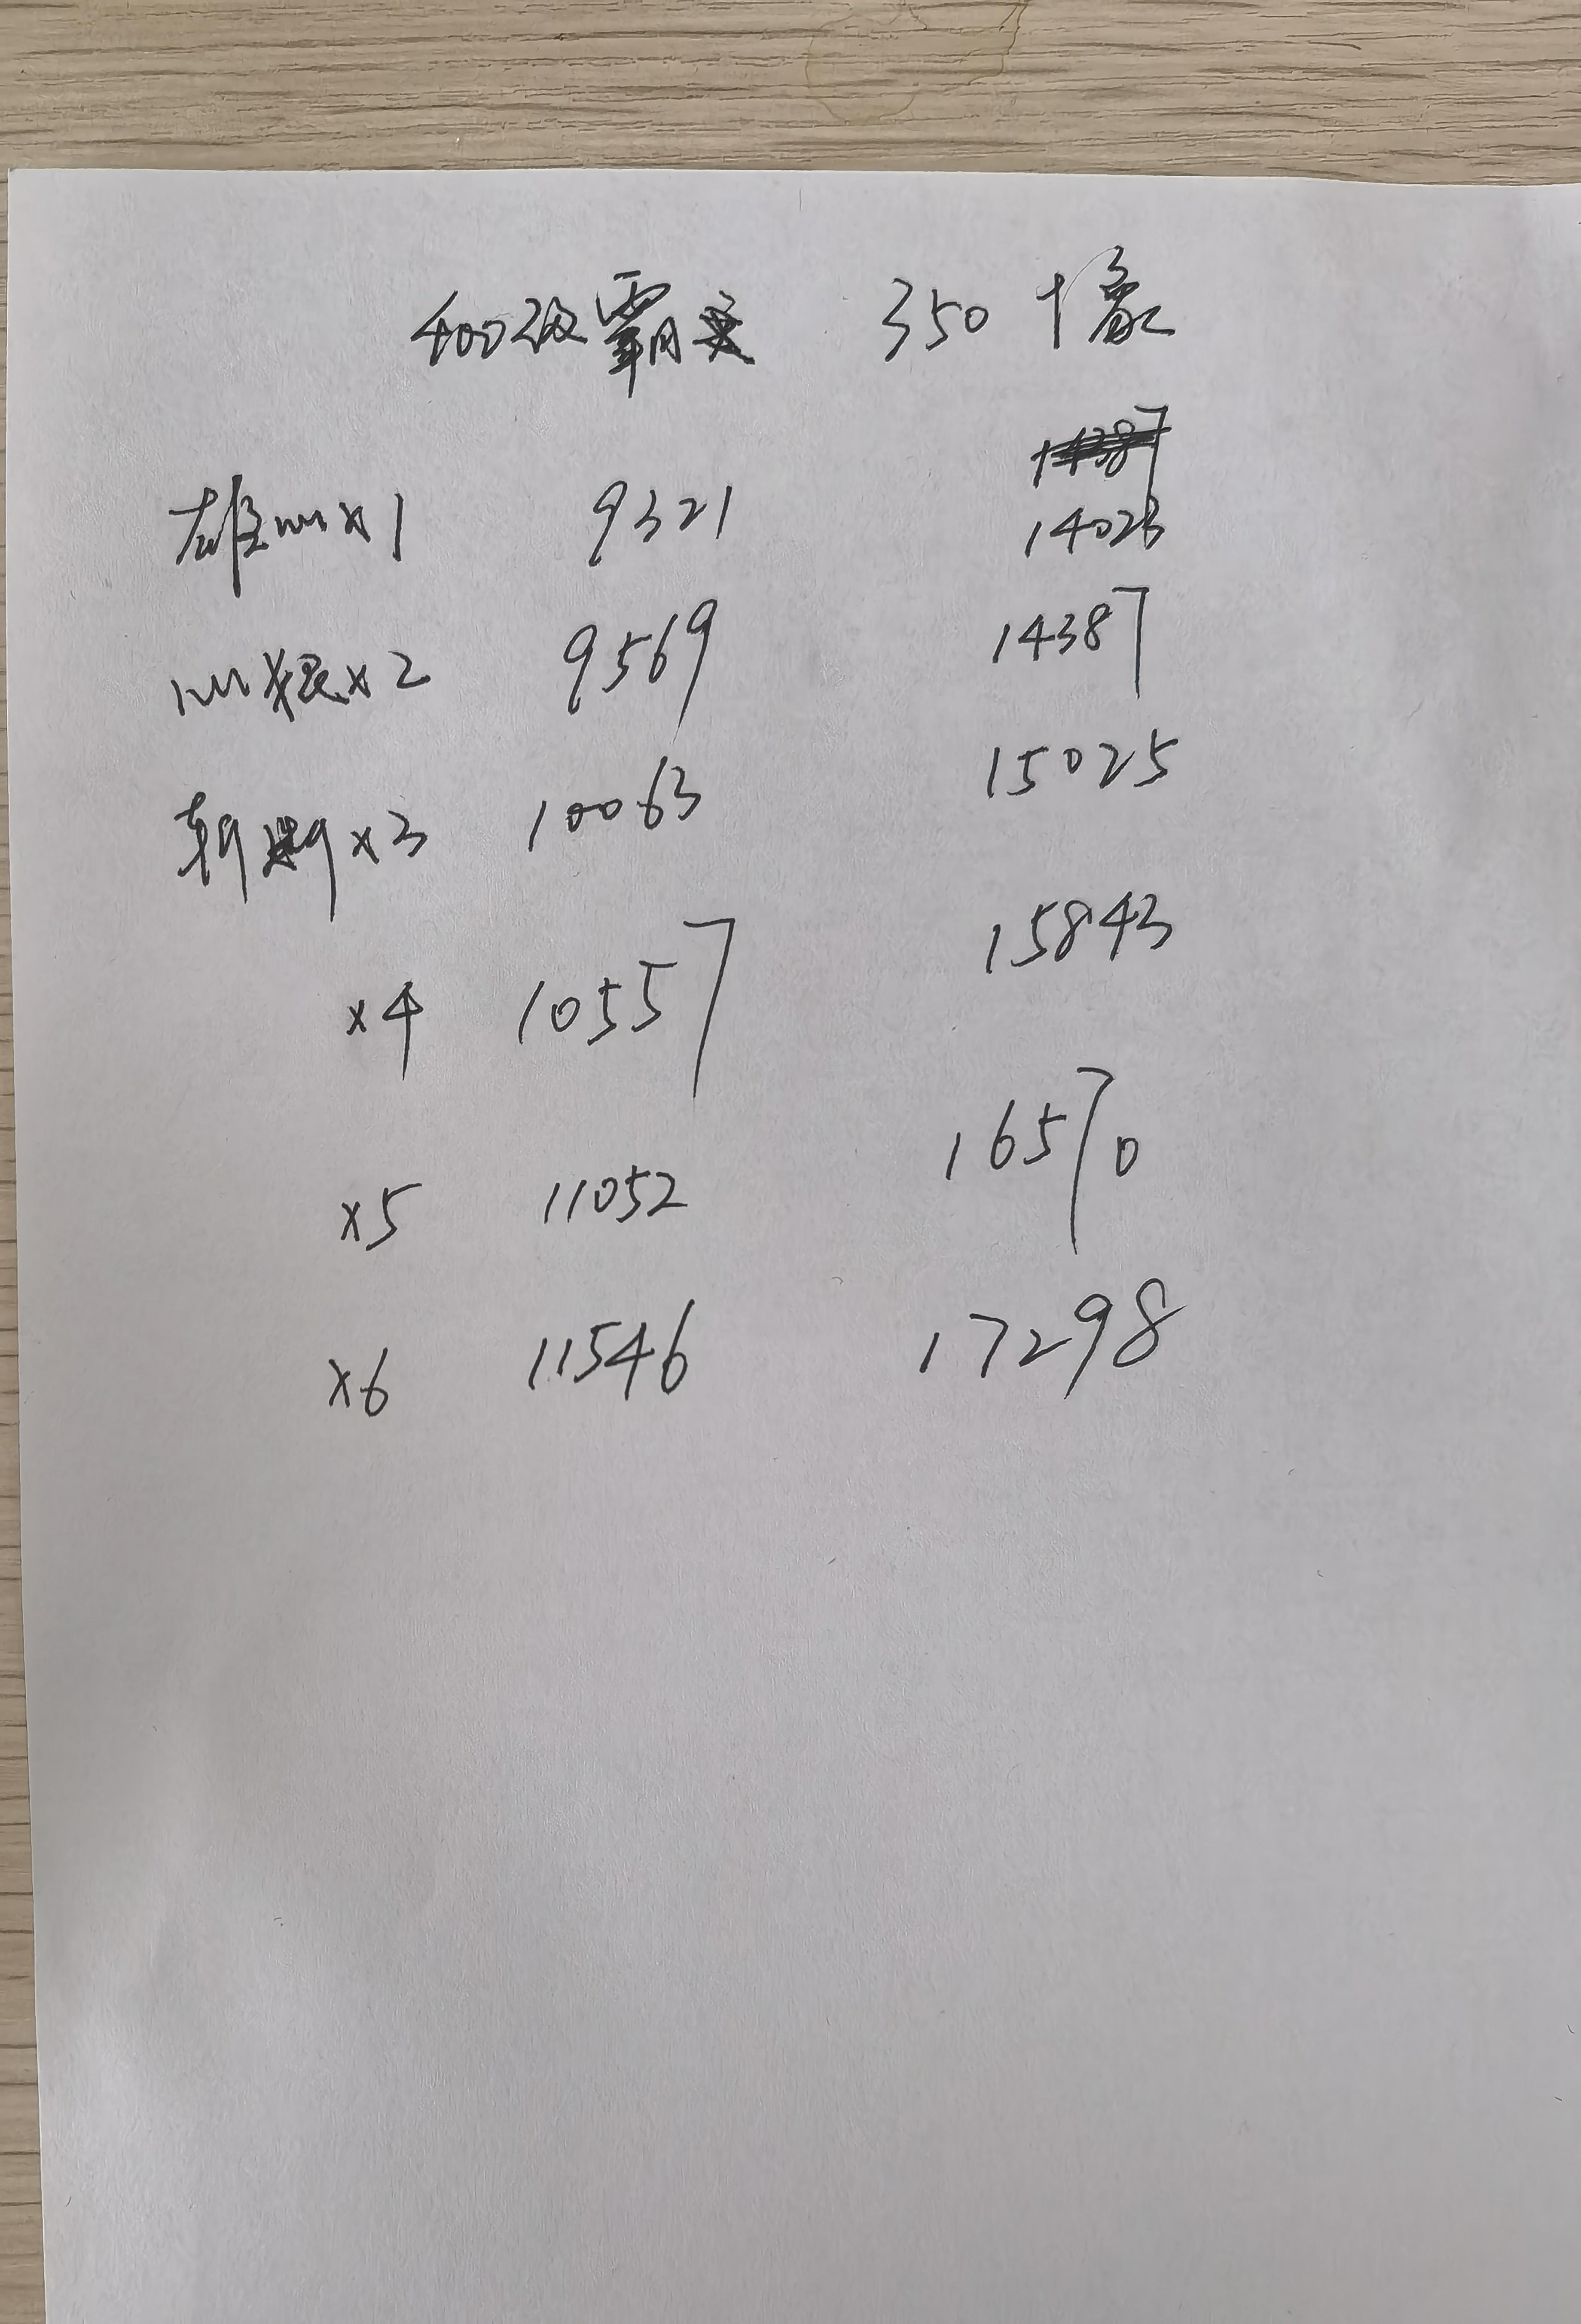 400级霸 350 十象
雄心x1 9321 14023
心狠x2 9569 14387
朝x3 10063 15025
x4 10557 15843
x5 11052 16570
x6 11546 17298